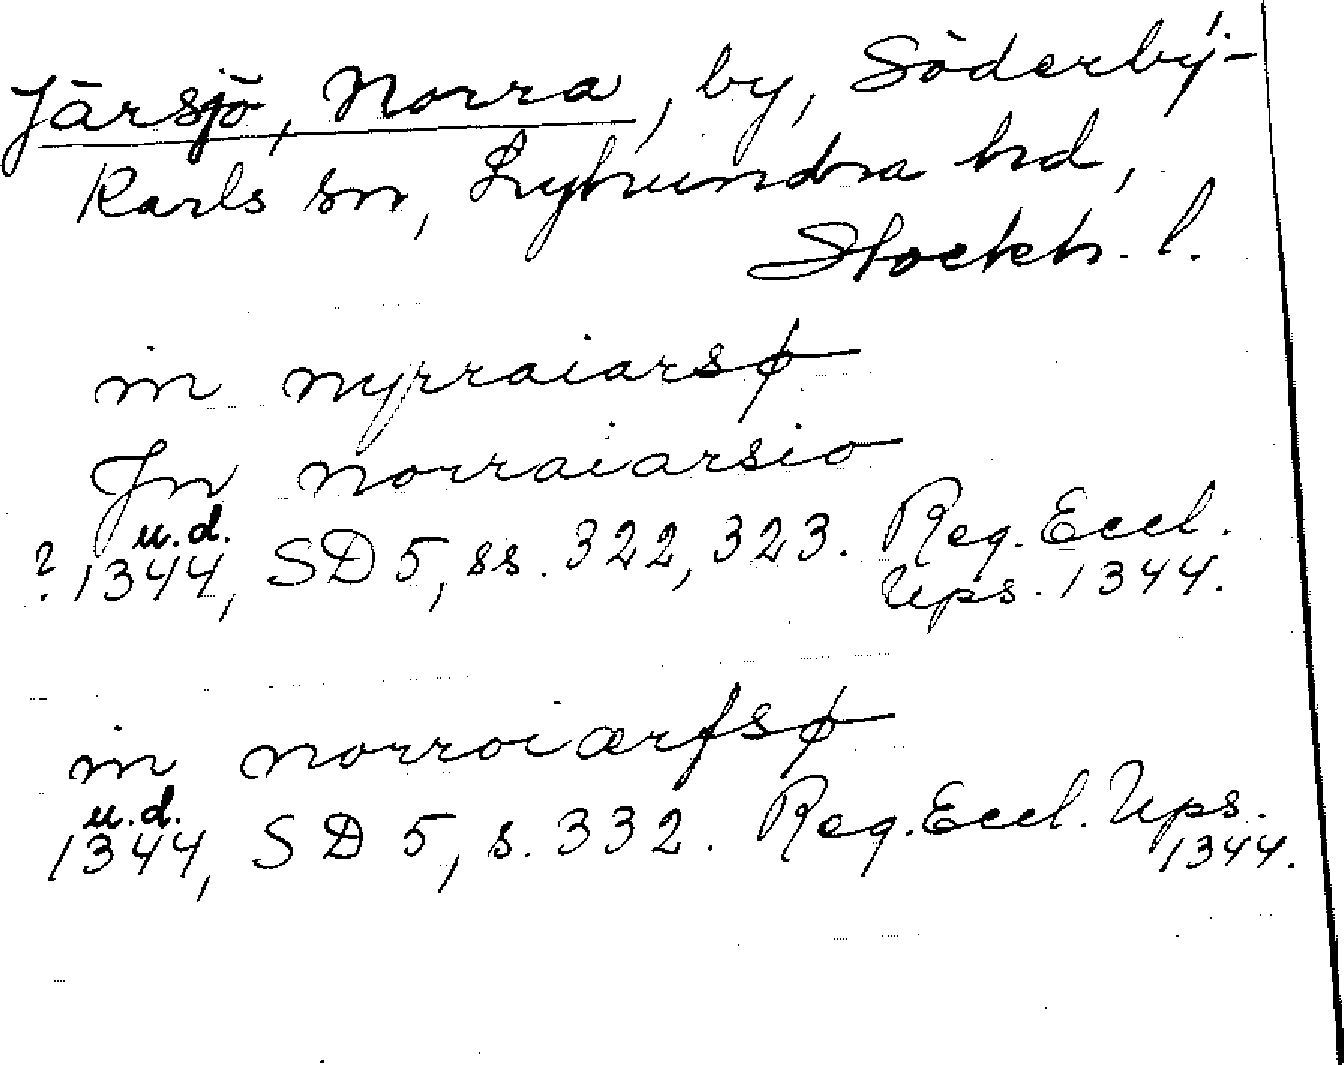 Järsjö, Norra, by, Söderby-
Karls sn, Lyhundra hd,
Stockh. l.
in nyrraiarsø
Jn norraiarsio
u.d.
? 1344, SD 5, ss. 322, 323. Reg. Eccl.
Ups. 1344.
in norroiærfsø
u.d.
1344, SD 5, s. 332. Reg. Eccl. Ups.
1344.